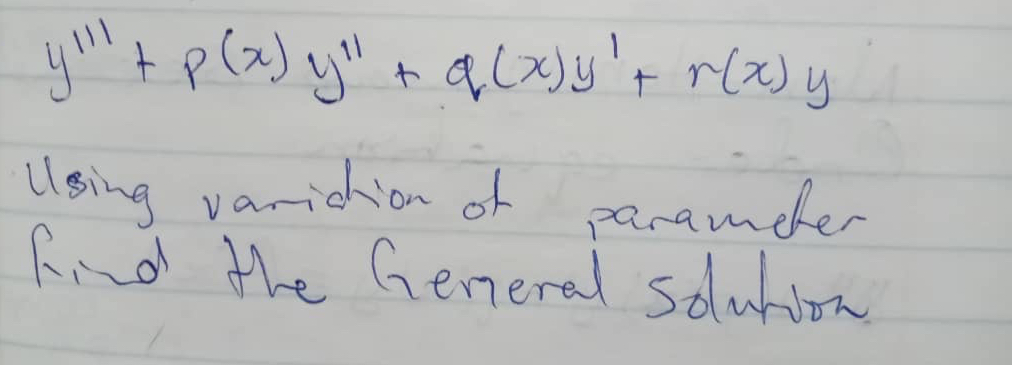 y''' + p(x) y'' + q(x)y' + r(x) y
Using variation of parameter
find the General solution